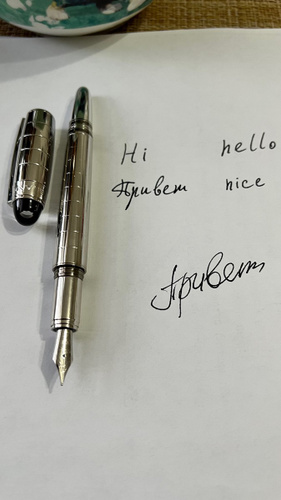 Hi hello
Привет nice
Привет